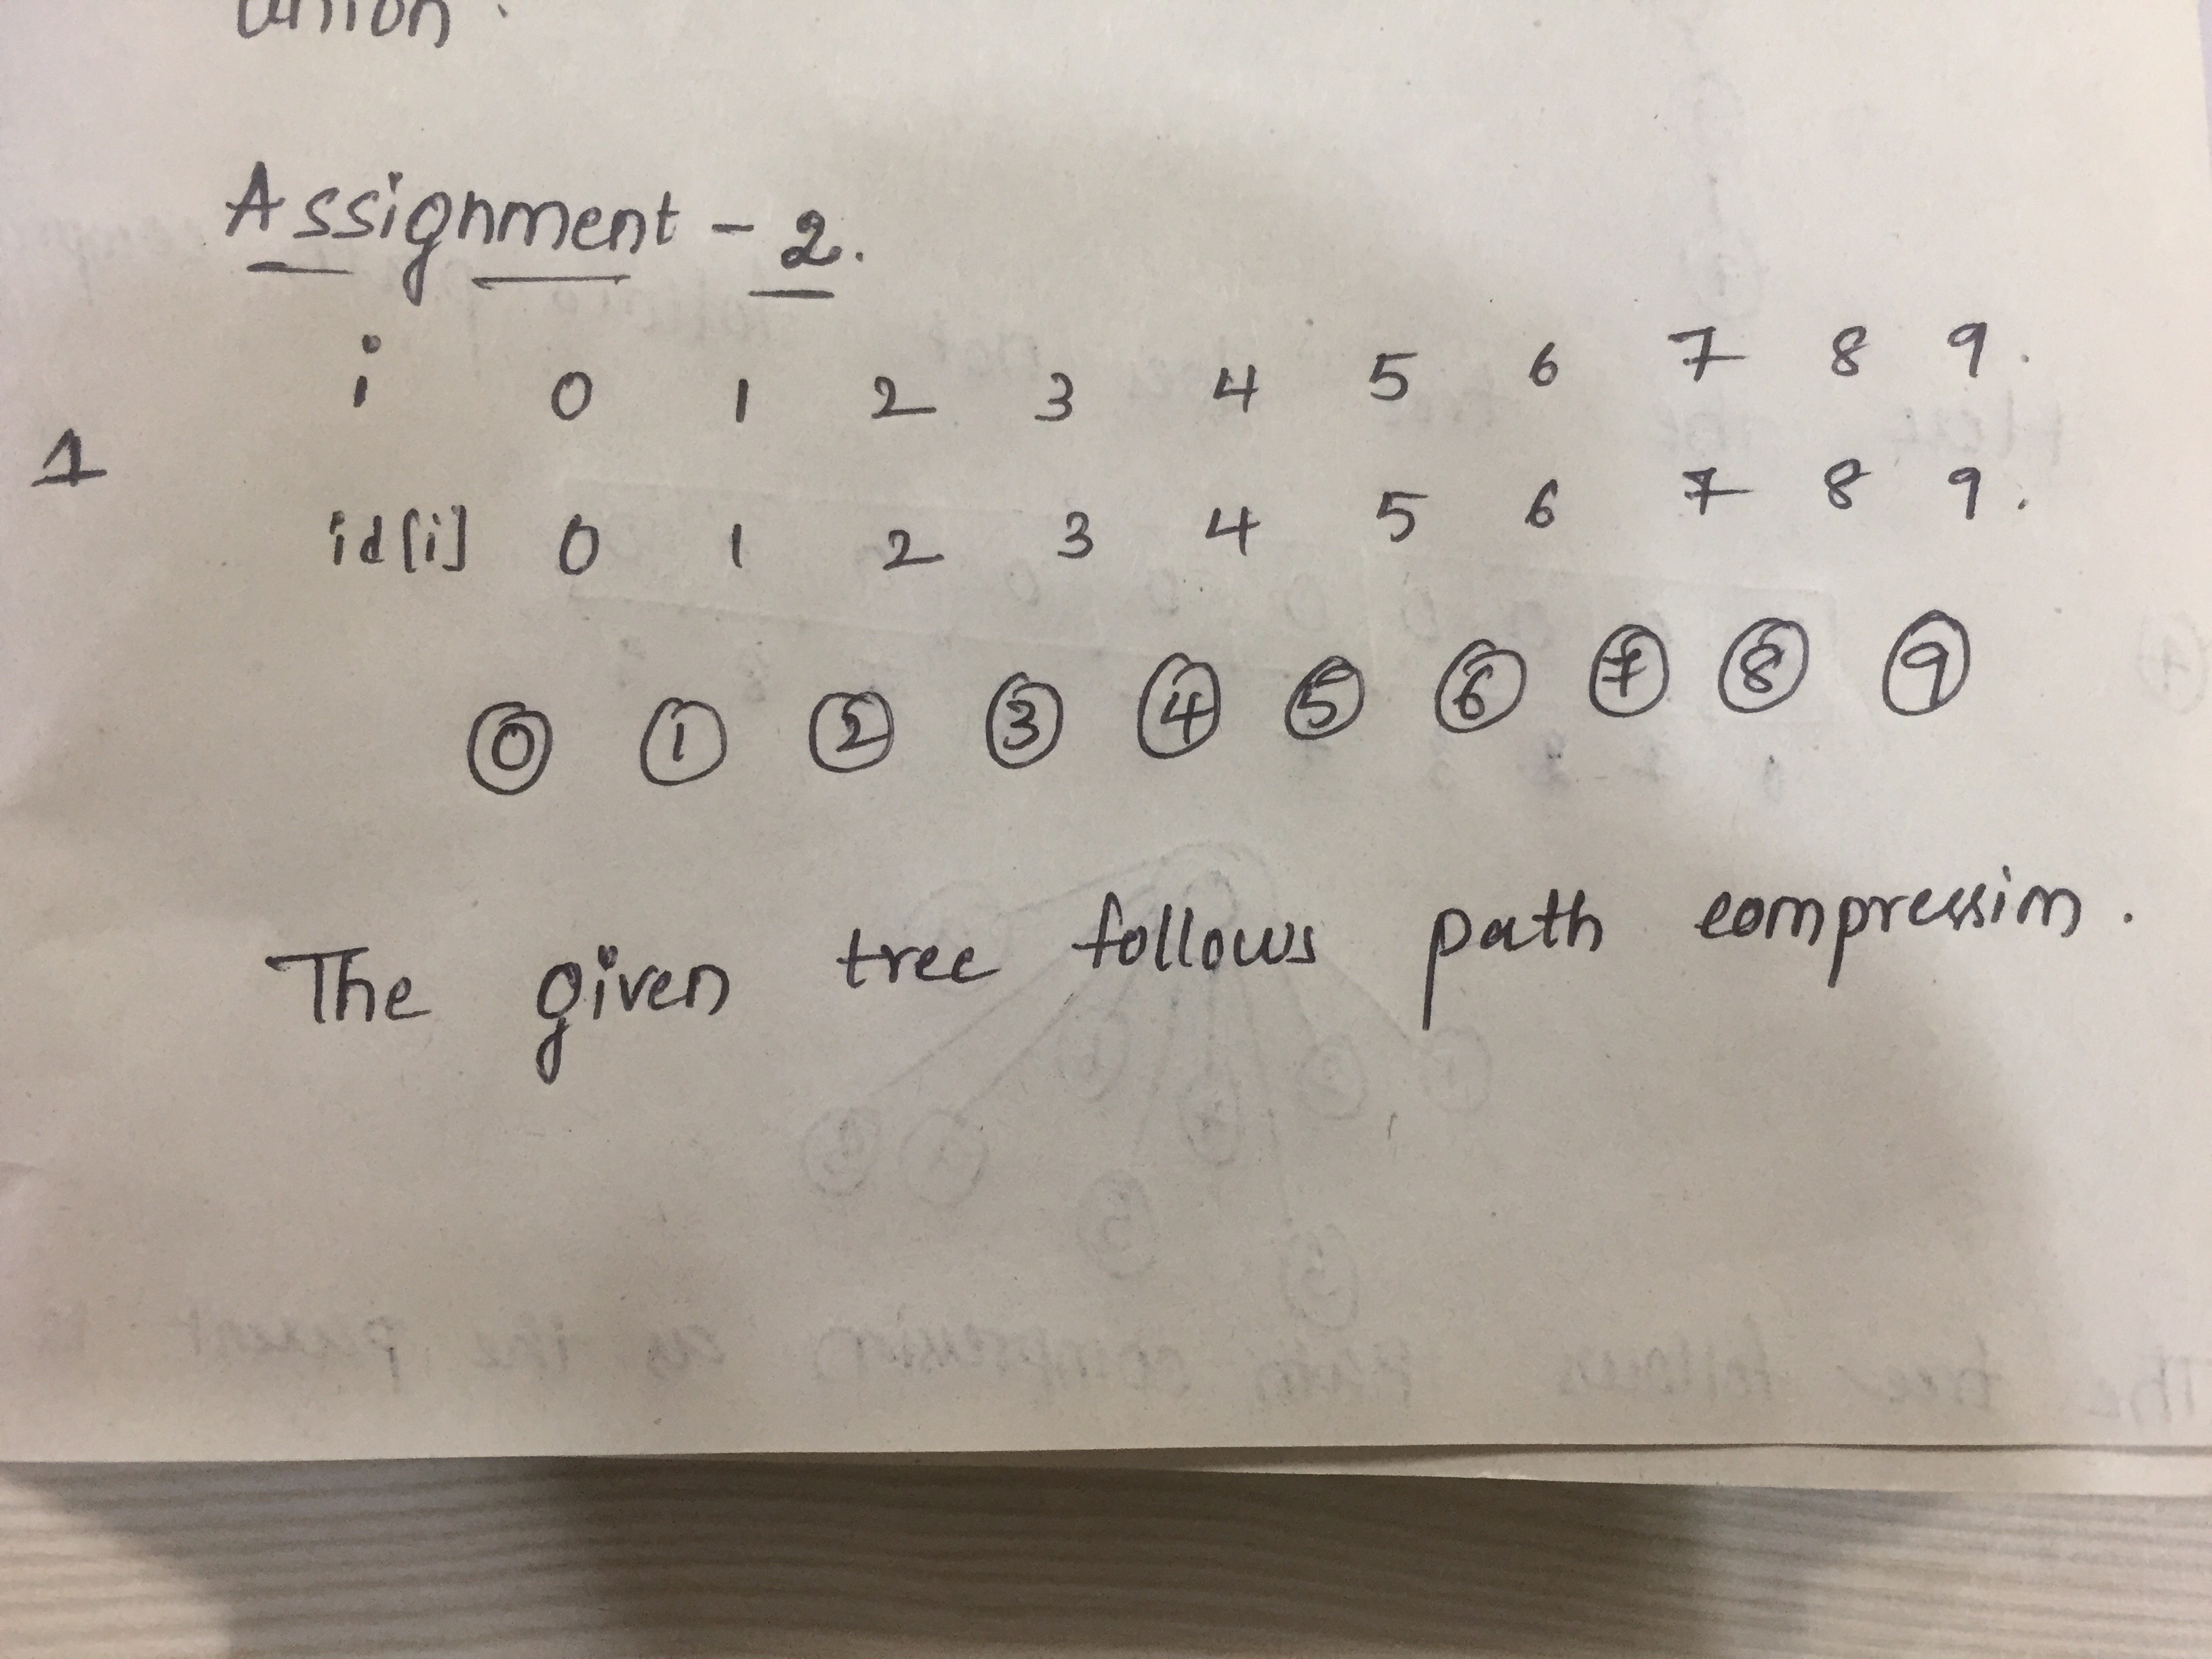 Assignment - 2.
1
i 0 1 2 3 4 5 6 7 8 9.
id[i] 0 1 2 3 4 5 6 7 8 9.
0 1 2 3 4 5 6 7 8 9
The given tree follows path compression.